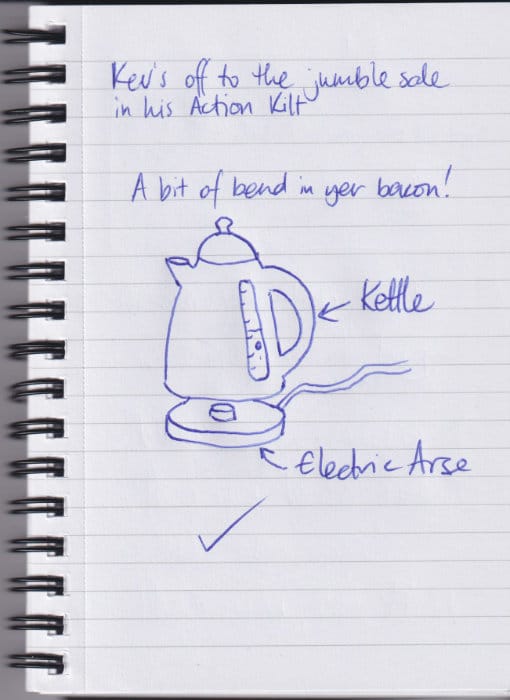 Kev's off to the jumble sale
in his Action Kilt
A bit of bend in yer bacon!
Kettle
Electric Arse